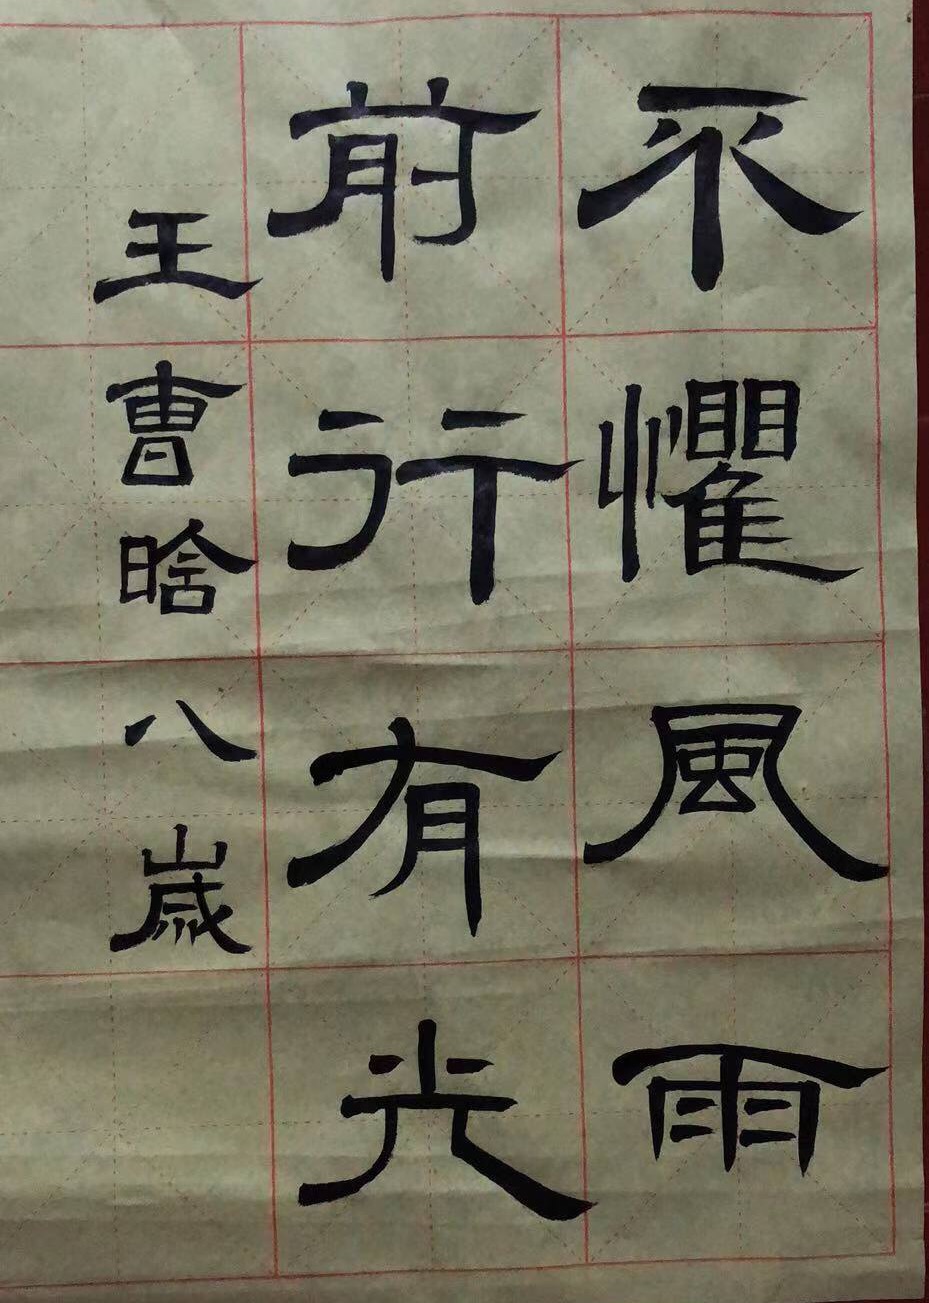 不懼風雨
前行有光
王曹晗八歲